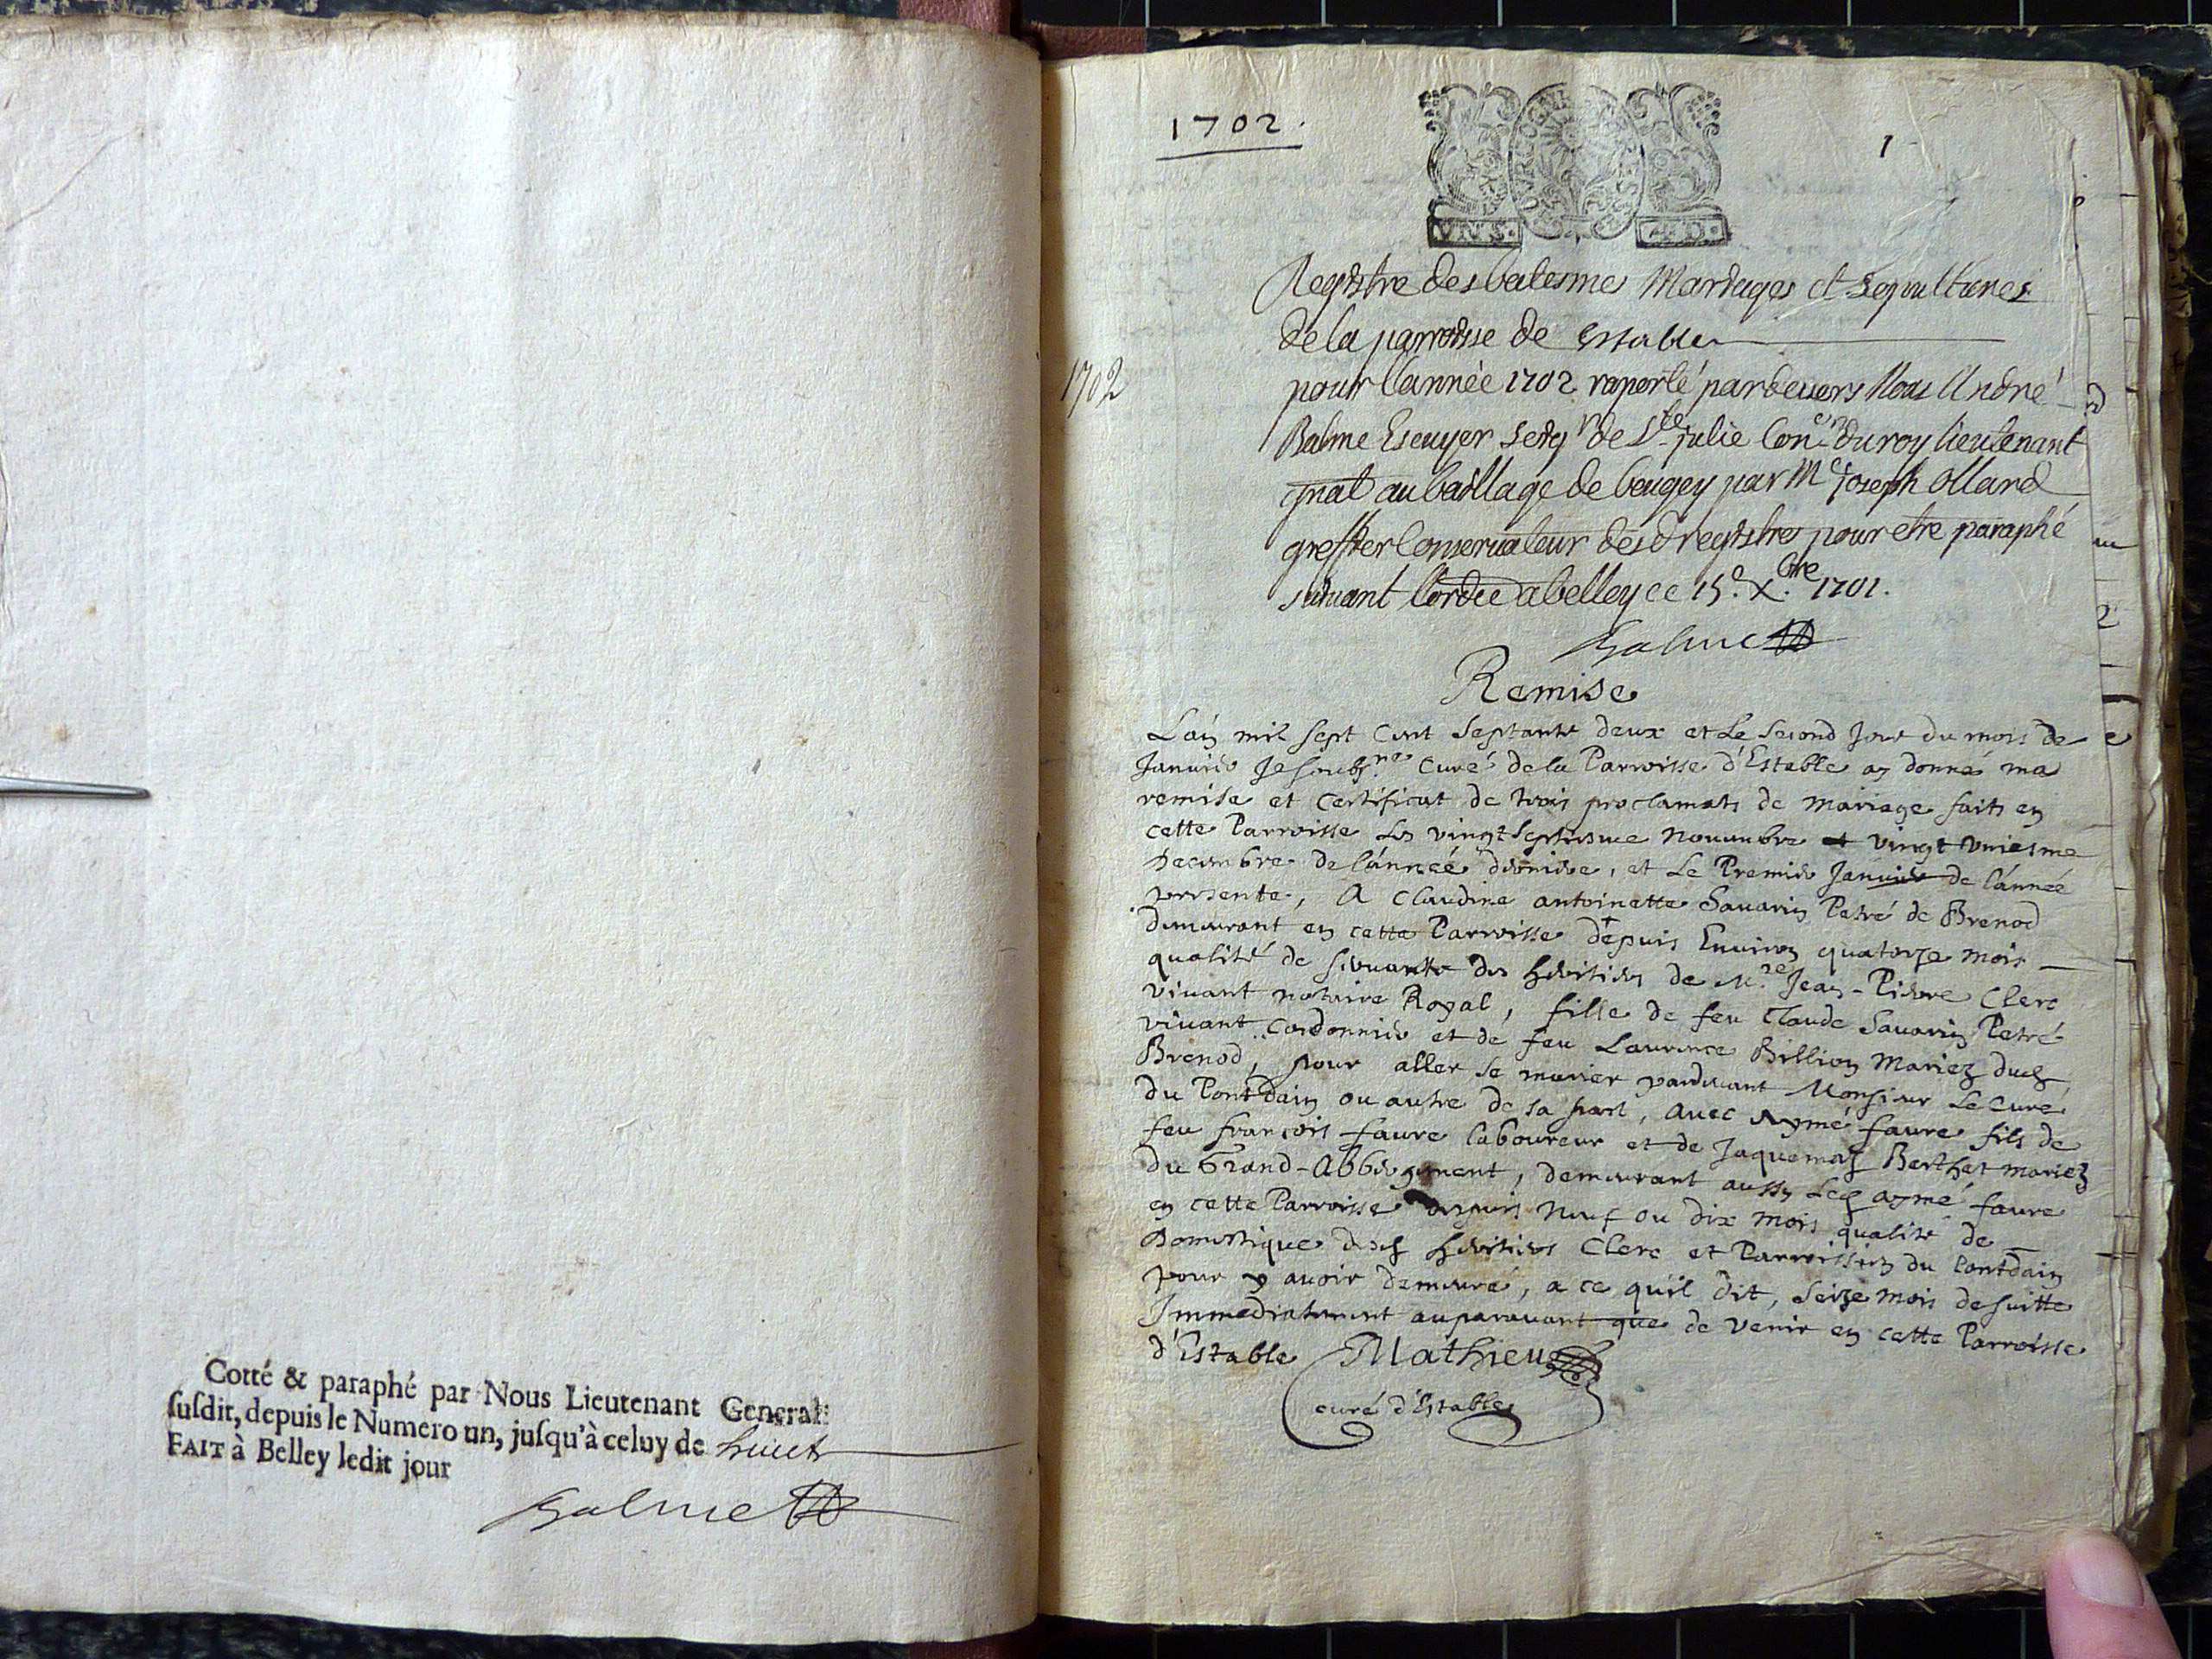 Cotté & paraphé par Nous Lieutenant General
susdit, depuis le Numero un, jusqu'à celuy de huict
FAIT à Belley ledit jour
Balme
1702.
1
VN S.
4.D.
1702
Registre des batesmes Mariages et Sepultures
de la parroisse de Estables
pour l'année 1702 raporté pardeuers Nous André
Balme Escuyer Seigr de Ste julie Coner du roy lieutenant
gnal au baillage de beugey par Me joseph Ollard
greffier Conseruateur desd registres pour etre paraphé
suiuant l'ordce a belley ce 15e Xbre 1701.
Balme
Remise
L'an mil sept cent septante deux et le second jour du mois de
Januier Je soubsné Curé de la Parroisse d'Estable ay donné ma
remise et Certificat de trois proclamats de mariage faits en
cette Parroisse les vingt septiesme Nouembre et vingt vniesme
Decembre de l'année derniere, et Le Premier Januier de l'année
presente, A Claudine antoinette Sauarin Petré de Brenod
demeurant en cette Parroisse depuis Enuiron quatorze mois
qualité de seruante des heritiers de Mre Jean-Pierre Clerc
viuant notaire Royal, fille de feu Claude Sauarin Petré
viuant Cordonnier et de feu Laurence Billion Mariez dud
Brenod, pour aller se marier pardeuant Monsieur Le Curé
du Pontdain ou autre de sa part, auec Aymé faure fils de
feu françois faure laboureur et de Jaquemaz Berthet mariez
du Grand-Abbergement, demeurant aussy Led aymé faure
en cette Parroisse depuis neuf ou dix mois qualité de
Domestique desd heritiers Clerc et Parroissien du Pontdain
pour y auoir demeuré, a ce qu'il dit, seize mois de suitte
Immediatement auparauant que de venir en cette Parroisse
d'Estable Mathieu
curé d'Estables